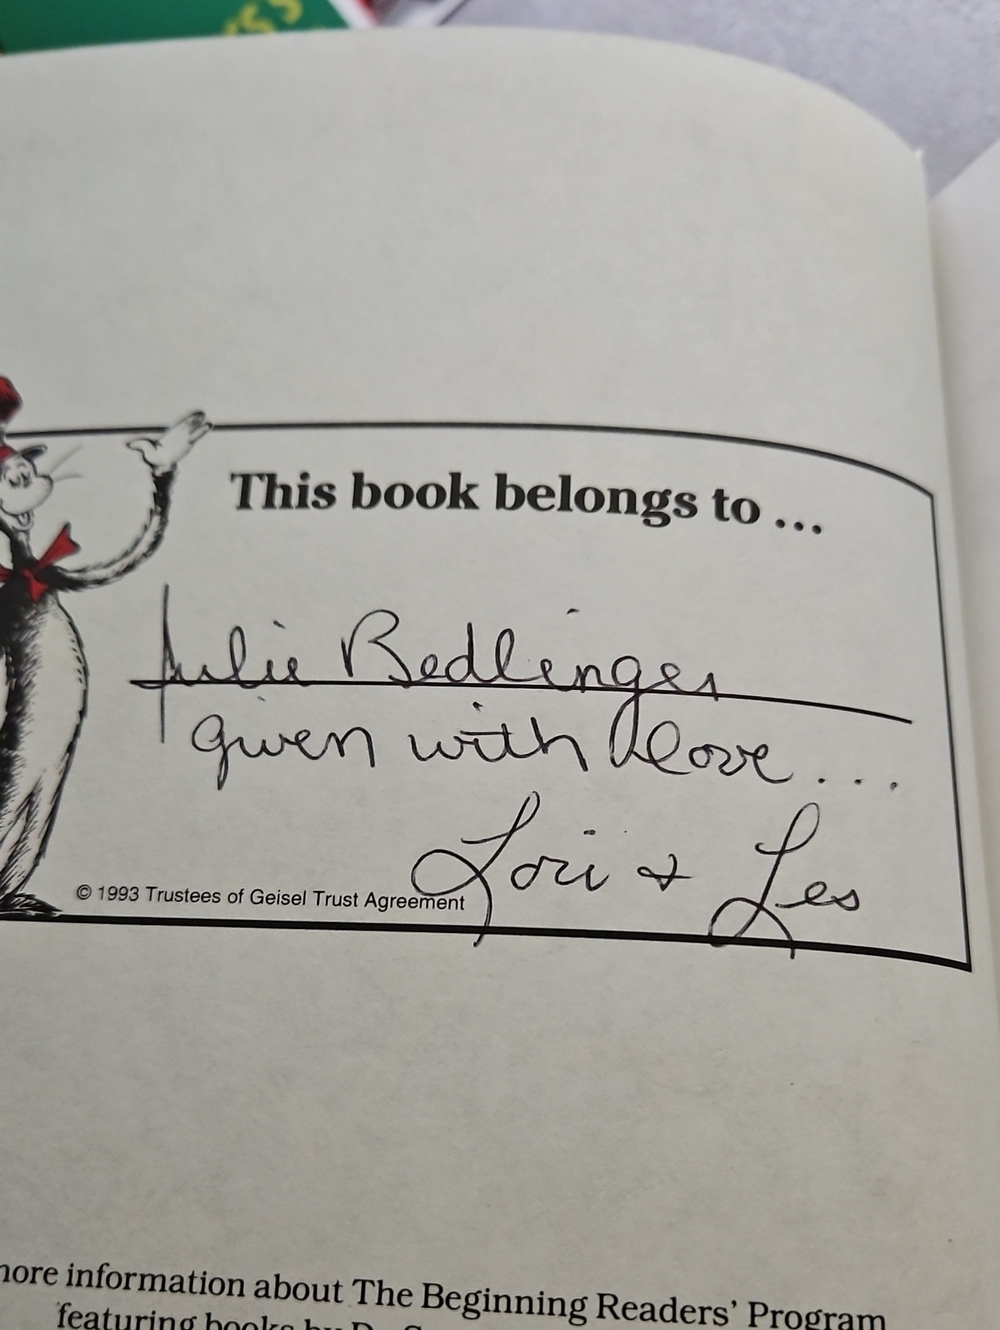 This book belongs to ...
Julie Bedlinger
given with love ...
Lori & Les
© 1993 Trustees of Geisel Trust Agreement
more information about The Beginning Readers' Program
featuring books by Dr.